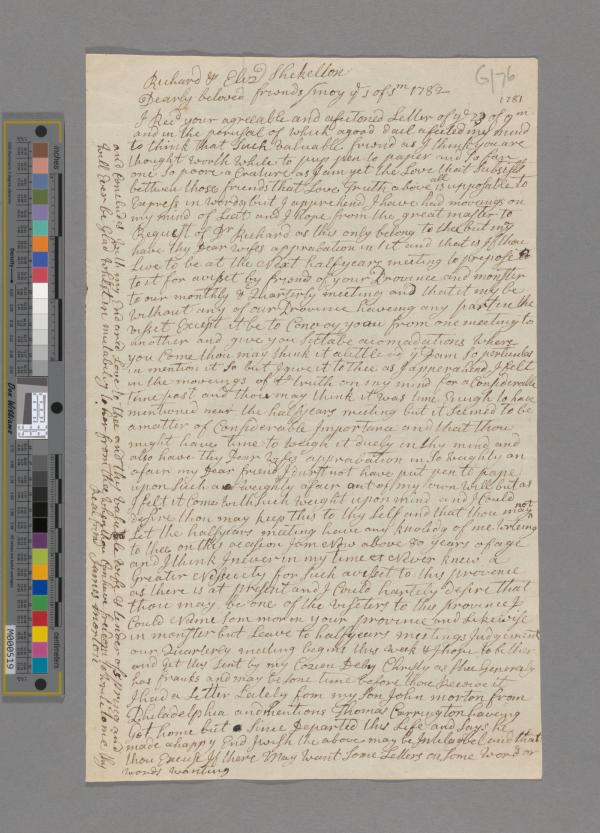 Richard & Eliz Shekelton
G/76
Dearly beloved friends / moy ye 5 of 5m 1782
1781
I Recd your agreeable and afectioned Letter of ye 23 of 9m
and in the perusal of which a good deal afected my mind
to think that Such valuable friend as I think you are
thought worth while to put pen to paper and So far
one So poore a Crature as I am yet the Love that Subsests
between those friends that Love Truth above is upposable to
Express in words but I apprehend I have had movings on
my mind of Leatt and I hope from the great master to
Request of Dr Richard as this only belong to thee but my
have thy Dear wifes approbation in it and that is If thou
Live to be at the Next halfyears meeting to propose
to it for a visset by friend of your Province and monster
to our monthly & Quarterly meeting and that it may be
without any of our Province haveing any part in the
visset Except it be to Convoy you from one meeting to
another and give you Sutable acomadations where
you Come thou may think it alittle od yt I am So perticuler
in mention it So but I give it to thee as I apperahend I felt
in the moveings of ye truth on my mind for a Considerable
time past and thou may think it was time Enugh to have
mentioned near the halfyears meeting but it Seemed to be
a matter of Considerable Importance and that thou
might have time to weigh it duely in thy mind and
also have thy Dear wifes approbation in So weighty an
afair my Dear friend I durst not have put pen to pape
upon Such a weighty afair out of my own will but as
I felt it Come with Such weight upon mind and I Could
desire thou may keep this to thy Self and that thou may not
Let the halfyears meeting have any knoledg of me writeing
to thee on this ocasion I am Now above 80 years of age
and I think I never in my time Never knew a
Greater Nessecity for Such a visset to this province
as there is at present and I Could hartely desire that
thou may be one of the visseters to this province I
Could Name som mor in your province and Likewise
in monster but Leave to halfyears meetings Judgement
our Quarterly meeting begins this week & I hope to be ther
and get this Sent by my Cozen Deby Christy as She Generaly
has franks and may be Some time before thou Receive it
I had a Letter Lately from my Son John morton from
Philadelphia and mentions Thomas Carrington haveing
Got home but Since Departed this Life and Says he
made a happy End I wish the above may be Inteligabel and that
thou Excuse If there May want Some Letters or Some word or
words wanting
and Concludes with my Endeared Love to thee and thy valuable wife & tender ofspring and
will Ever be Glad whilst in mutability to her from thee when thou Can have freedom to write to me thy
Dear frind James morton
inches
centimeters
Don Williams
M000519